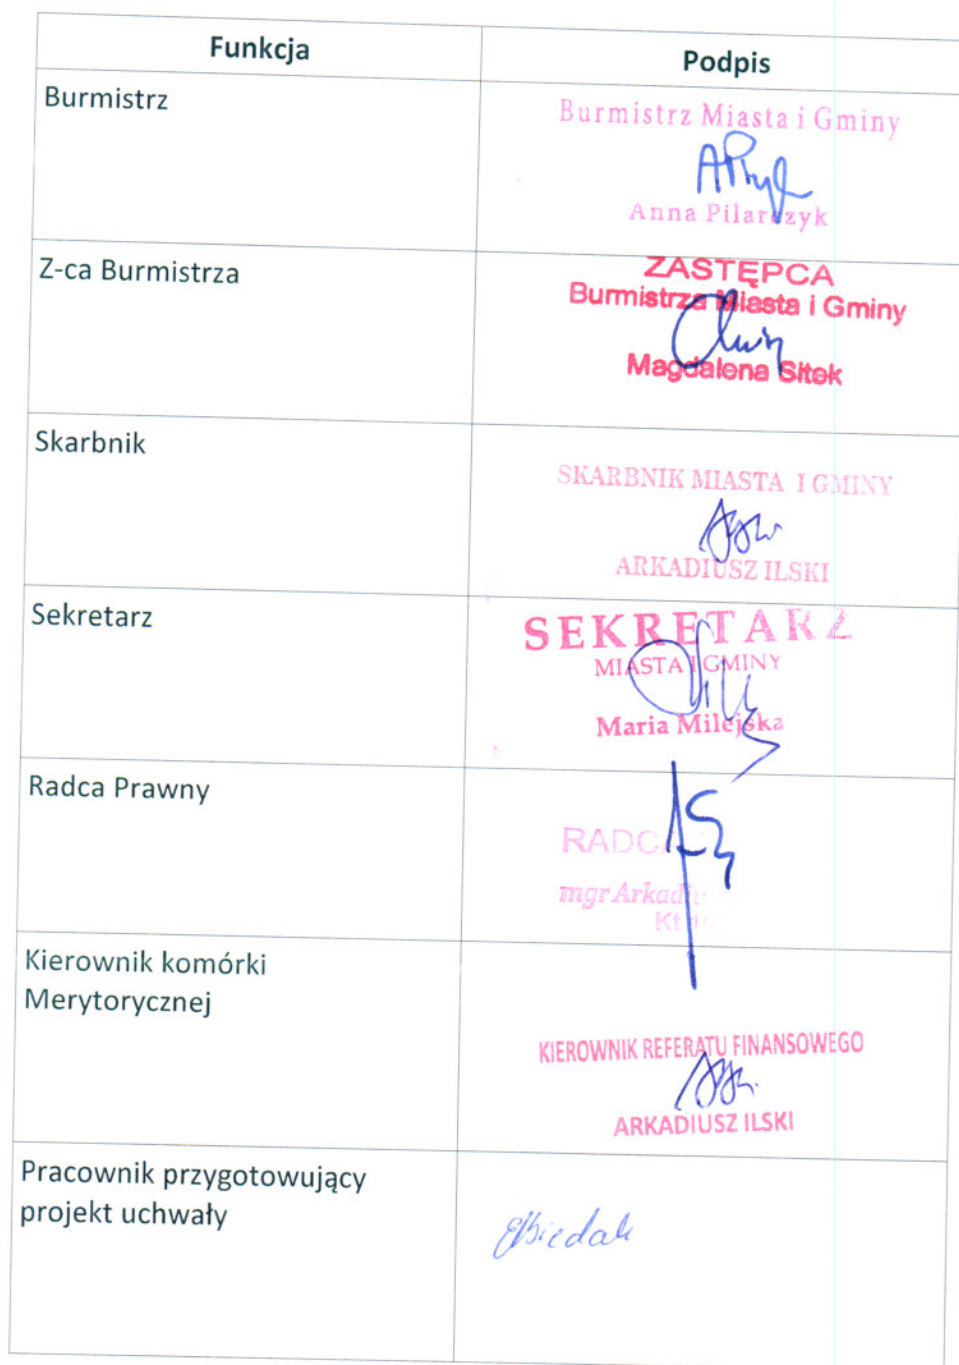 Funkcja Podpis
Burmistrz
Burmistrz Miasta i Gminy
Anna Pilarczyk
Z-ca Burmistrza
ZASTĘPCA
Burmistrza Miasta i Gminy
Magdalena Sitek
Skarbnik
SKARBNIK MIASTA I GMINY
ARKADIUSZ ILSKI
Sekretarz
SEKRETARZ
MIASTA I GMINY
Maria Milejska
Radca Prawny
RADCA
mgr
Kierownik komórki
Merytorycznej
KIEROWNIK REFERATU FINANSOWEGO
ARKADIUSZ ILSKI
Pracownik przygotowujący
projekt uchwały